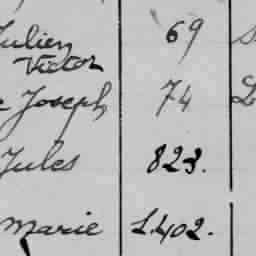 Julien 69
Victor
Joseph 74
Jules 823.
Marie 1.402.